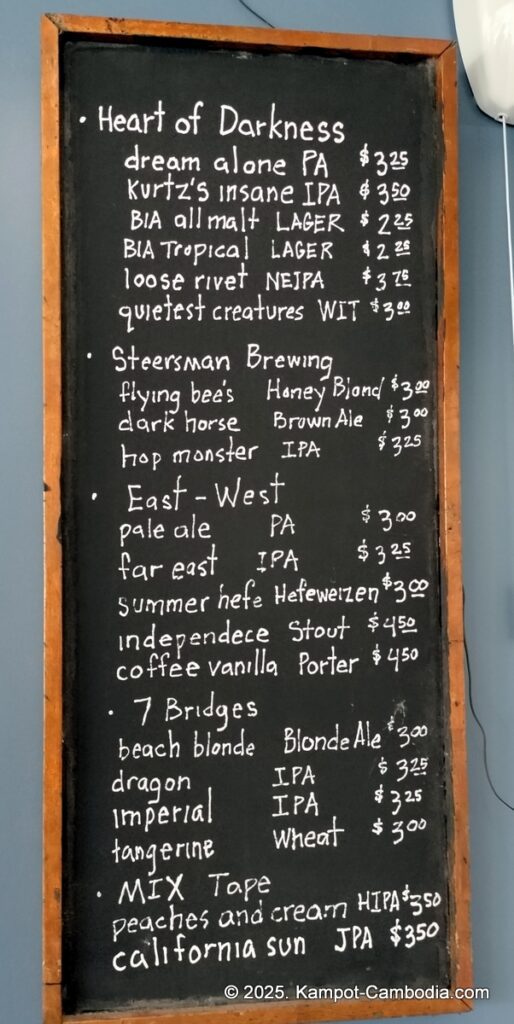 · Heart of Darkness
dream alone PA $3.25
Kurtz's insane IPA $3.50
BIA all malt LAGER $2.25
BIA Tropical LAGER $2.25
loose rivet NEIPA $3.75
quietest creatures WIT $3.00
· Steersman Brewing
flying bee's Honey Blond $3.00
dark horse Brown Ale $3.00
hop monster IPA $3.25
· East-West
pale ale PA $3.00
far east IPA $3.25
summer hefe Hefeweizen $3.00
independece Stout $4.50
coffee vanilla Porter $4.50
· 7 Bridges
beach blonde Blonde Ale $3.00
dragon IPA $3.25
imperial IPA $3.25
tangerine Wheat $3.00
· MIX Tape
peaches and cream HIPA $3.50
california sun JPA $3.50
© 2025. Kampot-Cambodia.com